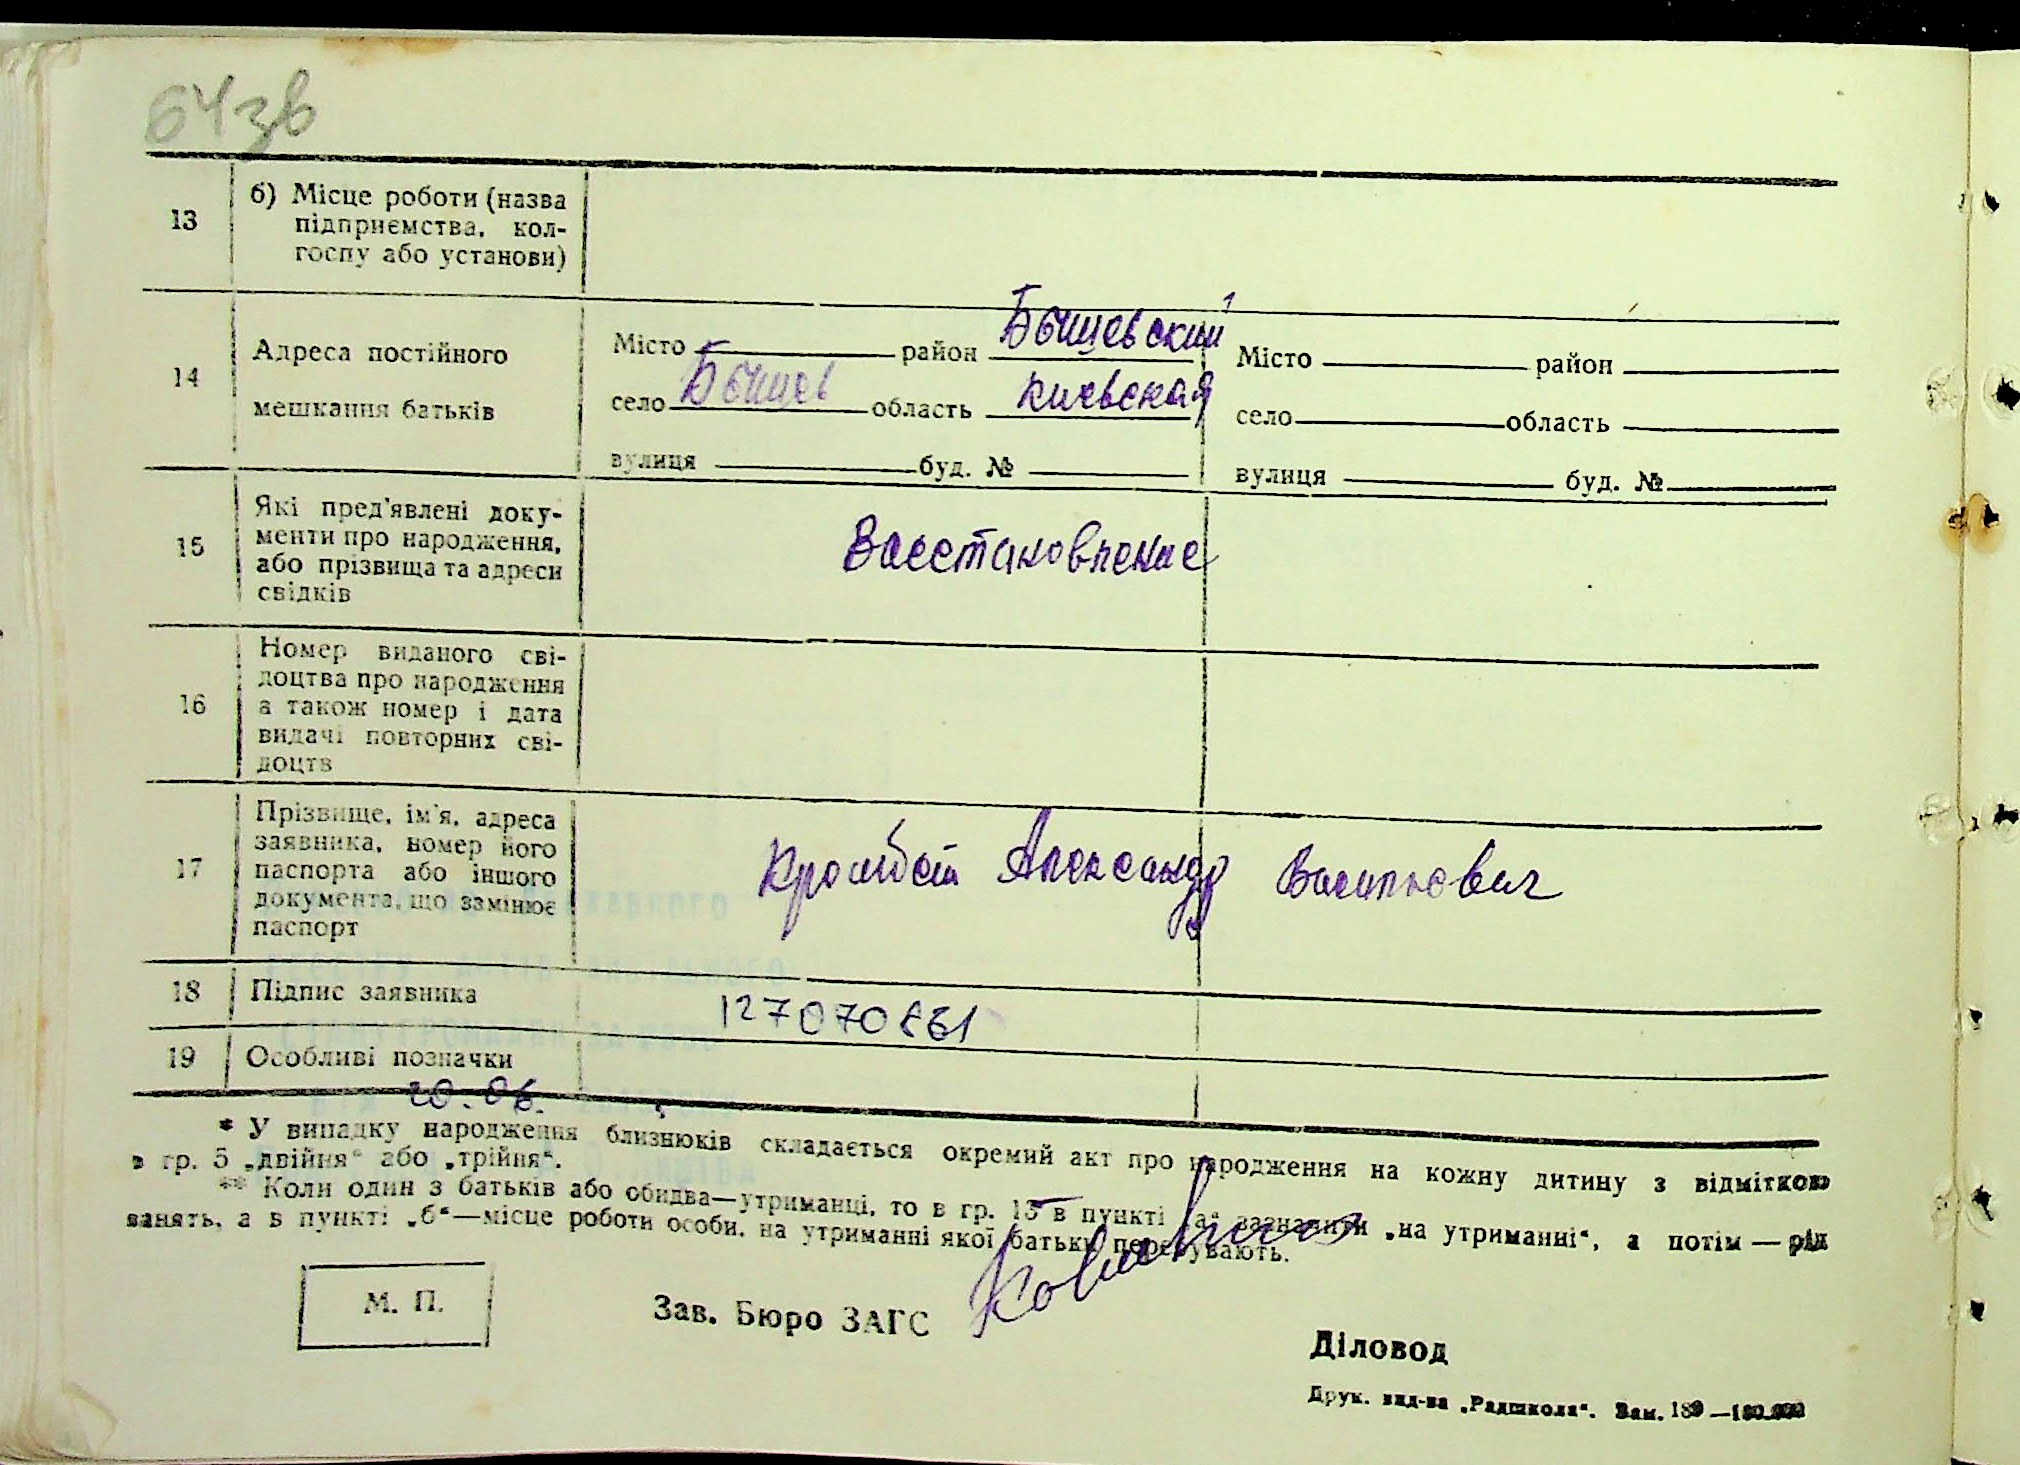 64зв
13 б) Місце роботи (назва
підприємства, кол-
госпу або установи)
14 Адреса постійного
мешкання батьків
Місто район Бышевский Місто район
село Бышев область Киевская село область
вулиця буд. № вулиця буд. №
15 Які пред'явлені доку-
менти про народження,
або прізвища та адреси
свідків
Восстановление
16 Номер виданого сві-
доцтва про народження
а також номер і дата
видачі повторних сві-
доцтв
17 Прізвище, ім'я, адреса
заявника, номер його
паспорта або іншого
документа, що замінює
паспорт
Александр Васильевич
18 Підпис заявника
127070861
19 Особливі позначки
20.06.
* У випадку народження близнюків складається окремий акт про народження на кожну дитину з відміткою
в гр. 5 „двійня“ або „трійня“.
** Коли один з батьків або обидва—утриманці, то в гр. 13 в пункті „а“ зазначити „на утриманні“, а потім — рід
занять, а в пункті „б“—місце роботи особи, на утриманні якої батьки перебувають.
М. П.
Зав. Бюро ЗАГС
Діловод
Друк. вид-ва „Радшкола“. Зам. 189 —